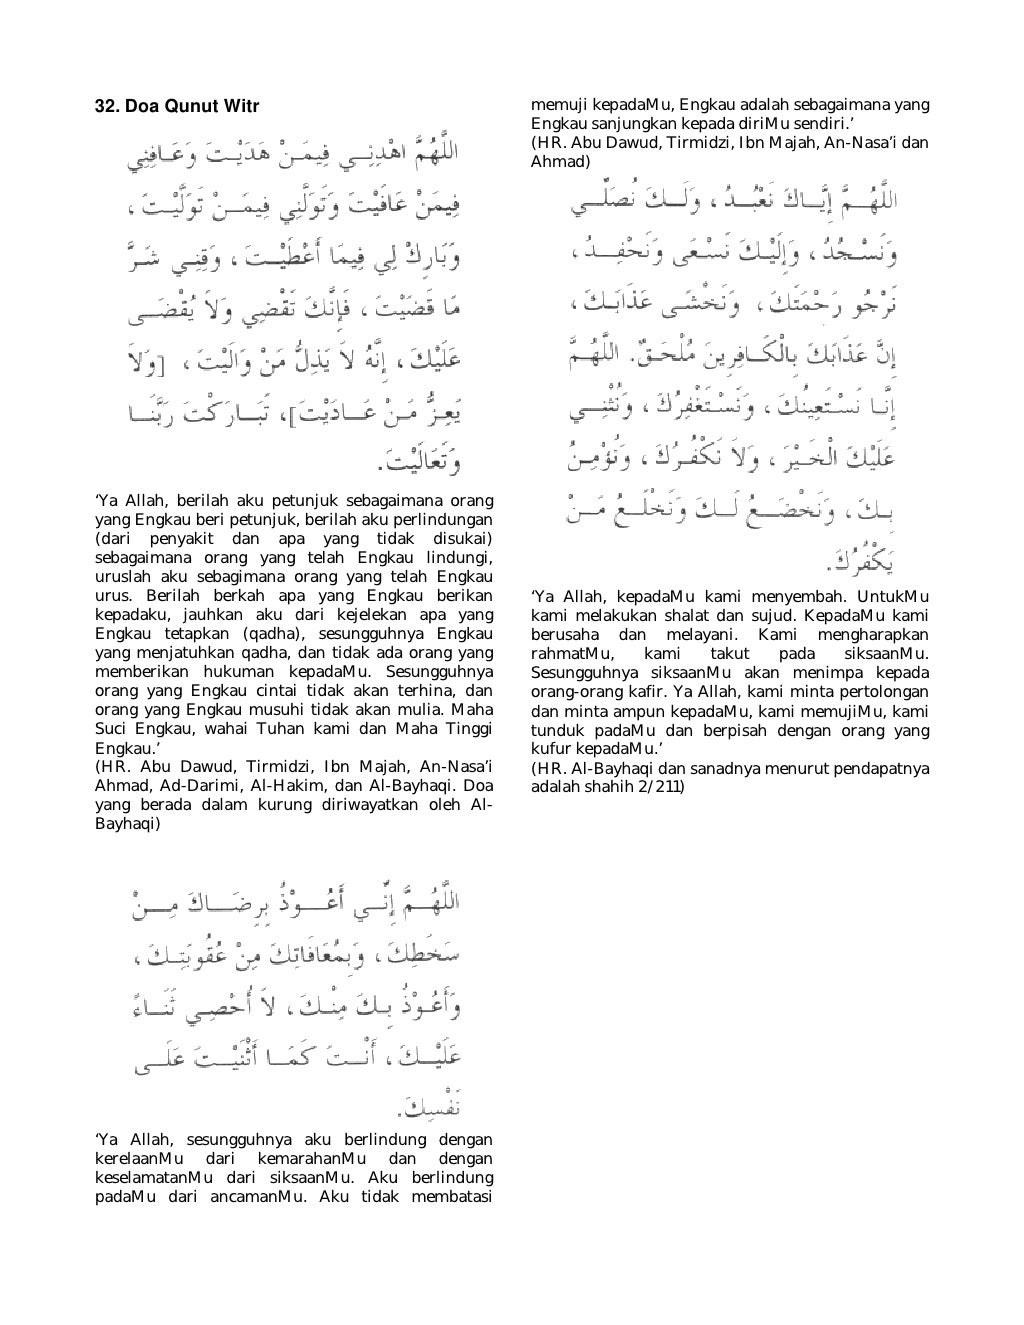 32. Doa Qunut Witr
اللَّهُمَّ اهْدِنِي فِيمَنْ هَدَيْتَ وَعَافِنِي
فِيمَنْ عَافَيْتَ وَتَوَلَّنِي فِيمَنْ تَوَلَّيْتَ،
وَبَارِكْ لِي فِيمَا أَعْطَيْتَ، وَقِنِي شَرَّ
مَا قَضَيْتَ، فَإِنَّكَ تَقْضِي وَلاَ يُقْضَى
عَلَيْكَ، إِنَّهُ لاَ يَذِلُّ مَنْ وَالَيْتَ، [وَلاَ
يَعِزُّ مَنْ عَادَيْتَ]، تَبَارَكْتَ رَبَّنَا
وَتَعَالَيْتَ.
‘Ya Allah, berilah aku petunjuk sebagaimana orang
yang Engkau beri petunjuk, berilah aku perlindungan
(dari penyakit dan apa yang tidak disukai)
sebagaimana orang yang telah Engkau lindungi,
uruslah aku sebagimana orang yang telah Engkau
urus. Berilah berkah apa yang Engkau berikan
kepadaku, jauhkan aku dari kejelekan apa yang
Engkau tetapkan (qadha), sesungguhnya Engkau
yang menjatuhkan qadha, dan tidak ada orang yang
memberikan hukuman kepadaMu. Sesungguhnya
orang yang Engkau cintai tidak akan terhina, dan
orang yang Engkau musuhi tidak akan mulia. Maha
Suci Engkau, wahai Tuhan kami dan Maha Tinggi
Engkau.’
(HR. Abu Dawud, Tirmidzi, Ibn Majah, An-Nasa’i
Ahmad, Ad-Darimi, Al-Hakim, dan Al-Bayhaqi. Doa
yang berada dalam kurung diriwayatkan oleh Al-
Bayhaqi)
اللَّهُمَّ إِنِّي أَعُوْذُ بِرِضَاكَ مِنْ
سَخَطِكَ، وَبِمُعَافَاتِكَ مِنْ عُقُوبَتِكَ،
وَأَعُوْذُ بِكَ مِنْكَ، لاَ أُحْصِي ثَنَاءً
عَلَيْكَ، أَنْتَ كَمَا أَثْنَيْتَ عَلَى
نَفْسِكَ.
‘Ya Allah, sesungguhnya aku berlindung dengan
kerelaanMu dari kemarahanMu dan dengan
keselamatanMu dari siksaanMu. Aku berlindung
padaMu dari ancamanMu. Aku tidak membatasi
memuji kepadaMu, Engkau adalah sebagaimana yang
Engkau sanjungkan kepada diriMu sendiri.’
(HR. Abu Dawud, Tirmidzi, Ibn Majah, An-Nasa’i dan
Ahmad)
اللَّهُمَّ إِيَّاكَ نَعْبُدُ، وَلَكَ نُصَلِّي
وَنَسْجُدُ، وَإِلَيْكَ نَسْعَى وَنَحْفِدُ،
نَرْجُو رَحْمَتَكَ، وَنَخْشَى عَذَابَكَ،
إِنَّ عَذَابَكَ بِالْكَافِرِينَ مُلْحَقٌ. اللَّهُمَّ
إِنَّا نَسْتَعِينُكَ، وَنَسْتَغْفِرُكَ، وَنُثْنِي
عَلَيْكَ الْخَيْرَ، وَلاَ نَكْفُرُكَ، وَنُؤْمِنُ
بِكَ، وَنَخْضَعُ لَكَ وَنَخْلَعُ مَنْ
يَكْفُرُكَ.
‘Ya Allah, kepadaMu kami menyembah. UntukMu
kami melakukan shalat dan sujud. KepadaMu kami
berusaha dan melayani. Kami mengharapkan
rahmatMu, kami takut pada siksaanMu.
Sesungguhnya siksaanMu akan menimpa kepada
orang-orang kafir. Ya Allah, kami minta pertolongan
dan minta ampun kepadaMu, kami memujiMu, kami
tunduk padaMu dan berpisah dengan orang yang
kufur kepadaMu.’
(HR. Al-Bayhaqi dan sanadnya menurut pendapatnya
adalah shahih 2/211)